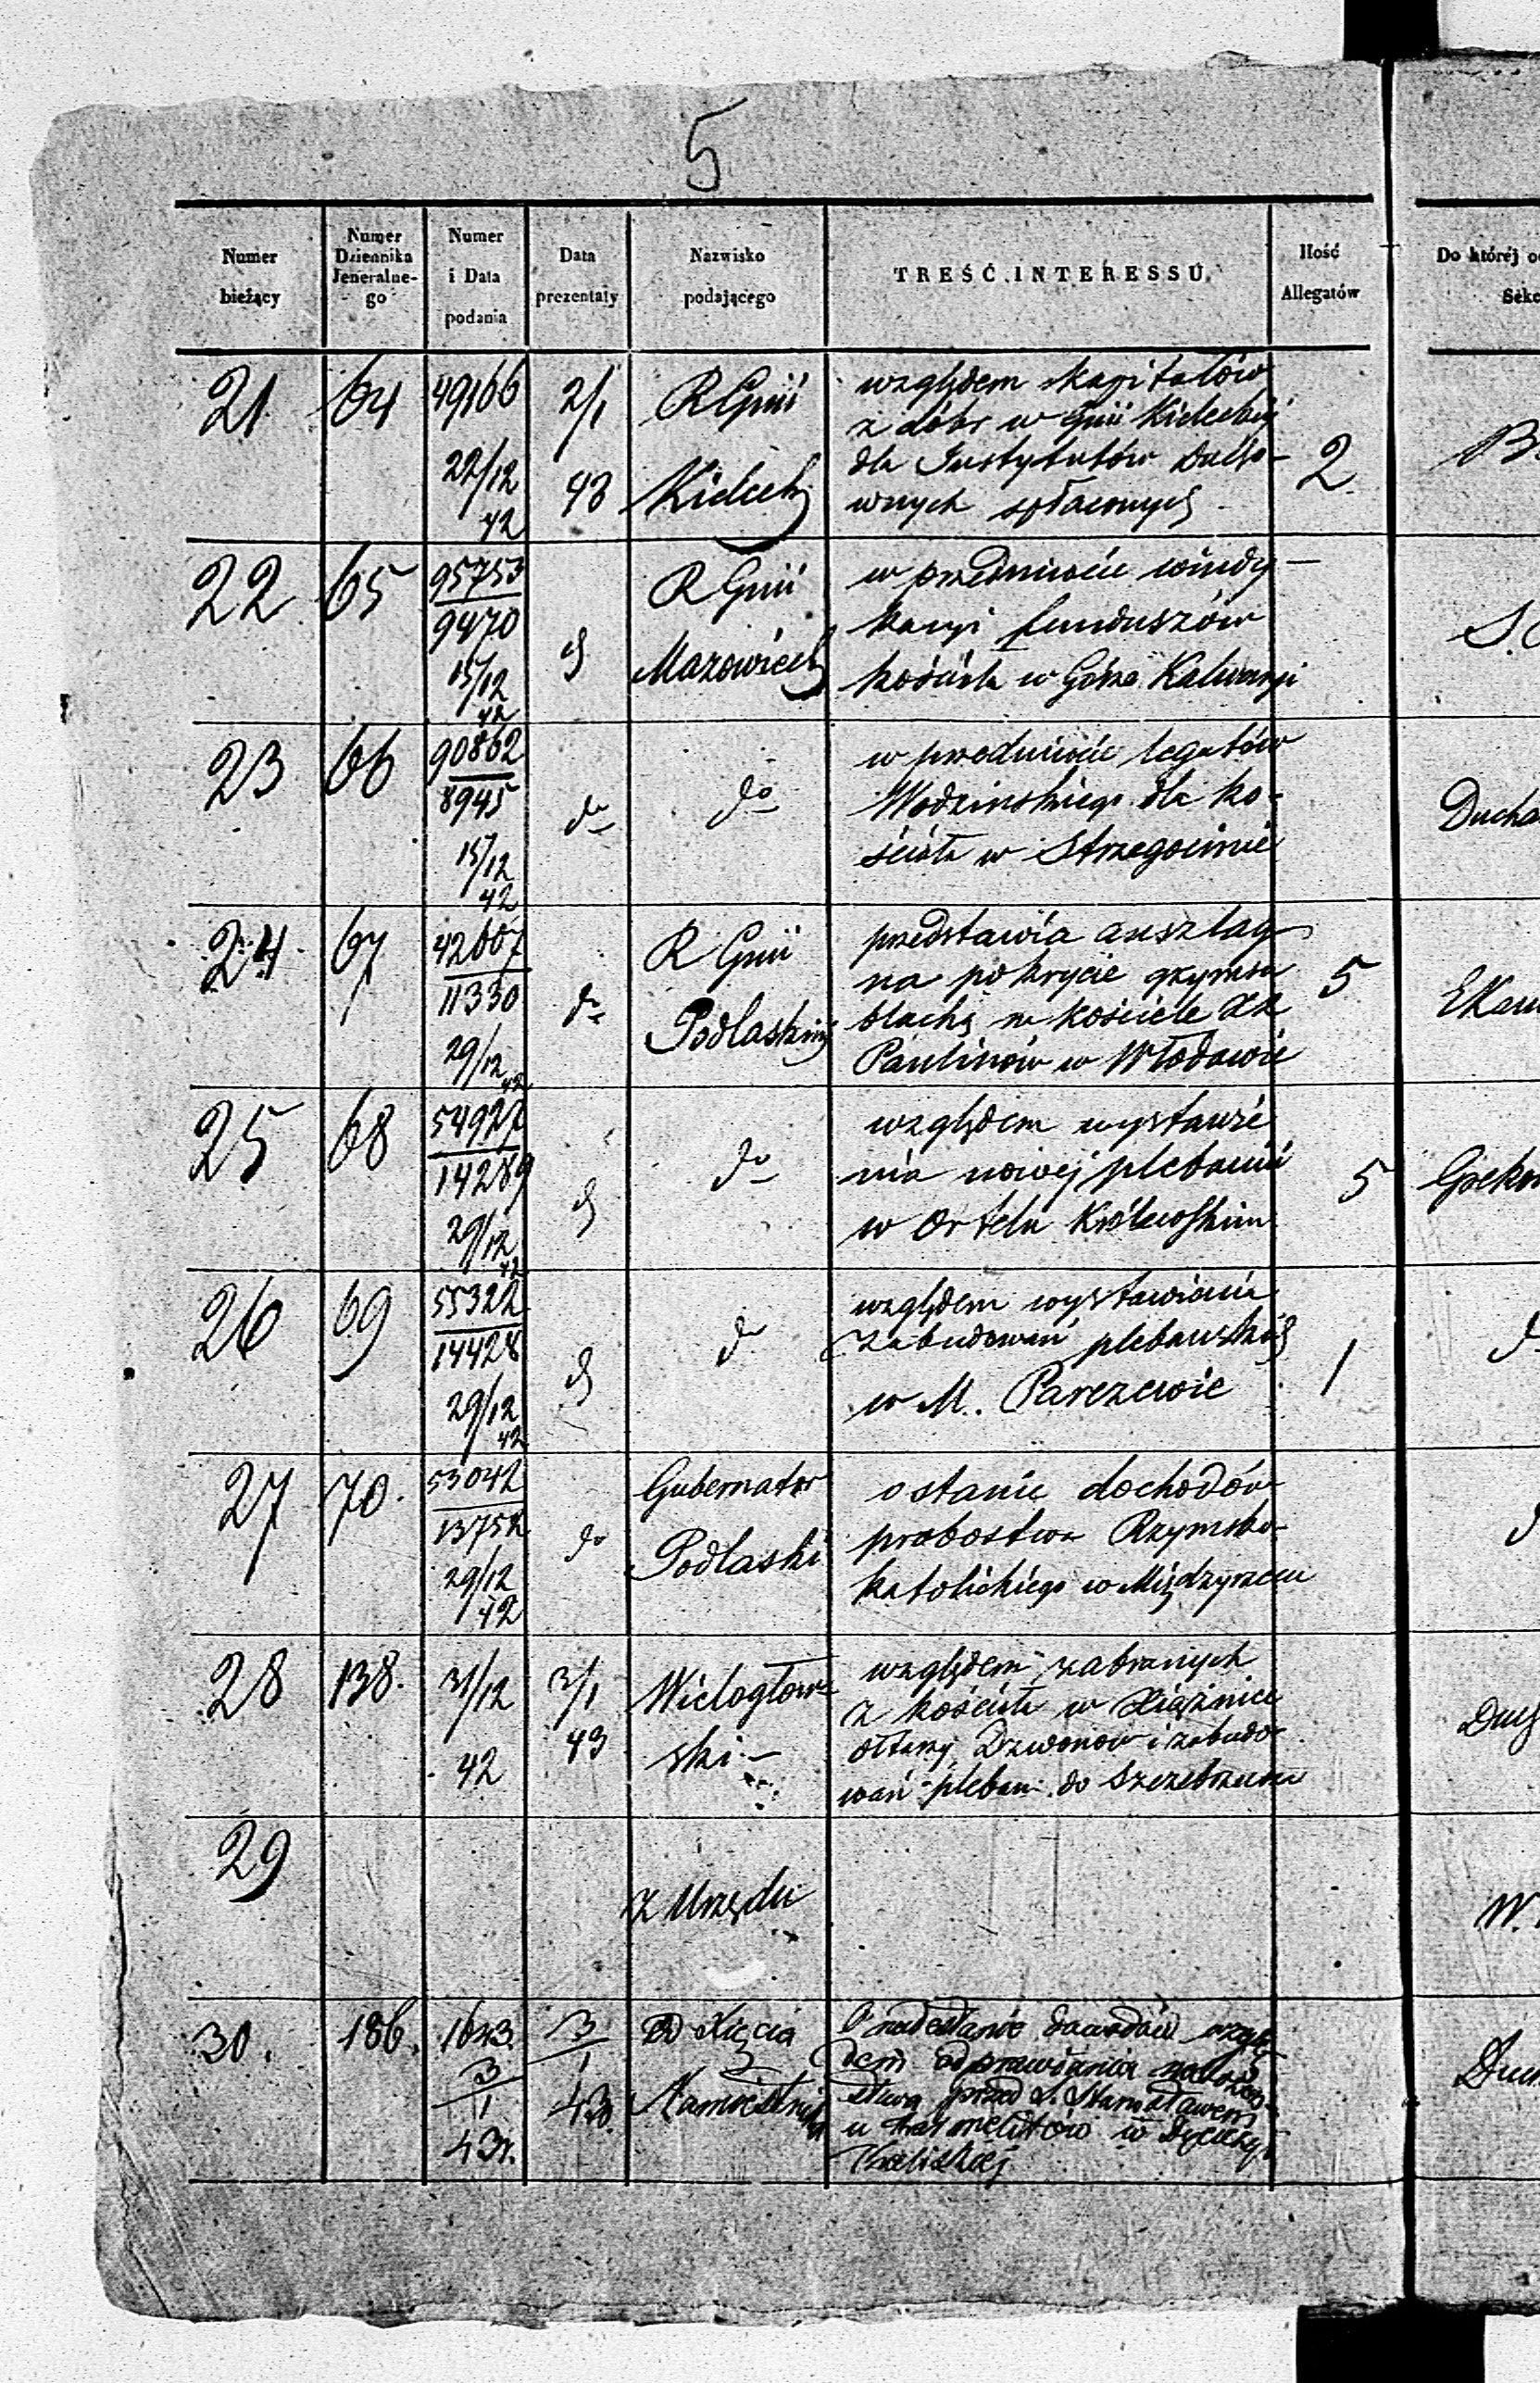 5
Numer bieżący
Numer Dziennika Jeneralne-go
Numer i Data podania
Data prezentaty
Nazwisko podającego
TREŚĆ INTERESSU.
Ilość Allegatów
Do której
21 64 49166 22/12 42 2/1 43 R Gnii Kieleck
względem kapitałów
z dóbr w Gnii Kieleckiej
dla Instytutów Ducho-
wnych spłaconych
2
22 65 95753 9470 15/12 42 R Gnii Mazowieck
w przedmiocie windy-
kacyi funduszów
kościoła w Górze Kalwaryi
23 66 90862 8945 15/12 42 do do
w przedmiocie legatów
Wodzińskiego dla ko-
ścioła w Strzegocinie
Ducho
24 67 42607 11330 29/12 42 do R Gnii Podlaskiej
przedstawia anszlag
na pokrycie gzymsu
blachą na kościele XX
Paulinów w Włodawie
5
25 68 54927 14289 29/12 42 do
względem wystawie
nia nowej plebanii
w Ortelu Królewskim
5
26 69 55322 14428 29/12 42 do
względem wystawienia
zabudowań plebańskich
w M. Parczewie
1
27 70. 53042 13752 29/12 42 do Gubernator Podlaski
o stanie dochodów
probostwa Rzymsko-
katolickiego w Międzyrzecu
28 138. 31/12 42 3/1 43 Wielogłow-
ski
względem zabranych
z kościoła w Xiążnice
ołtarzy Dzwonów i zabudo-
wań pleban. do Szczebrzusza
29 z Urzędu
W.
30. 186. 1643. 3/1 43r. 3/1 43. Od Xięcia Namiestnika
O nadesłanie dowodów wzglę
dem odprawiania nabożeń-
stwa przed S. Stanisławem
u Karmelitów w Dyecezyi
Kaliskiej